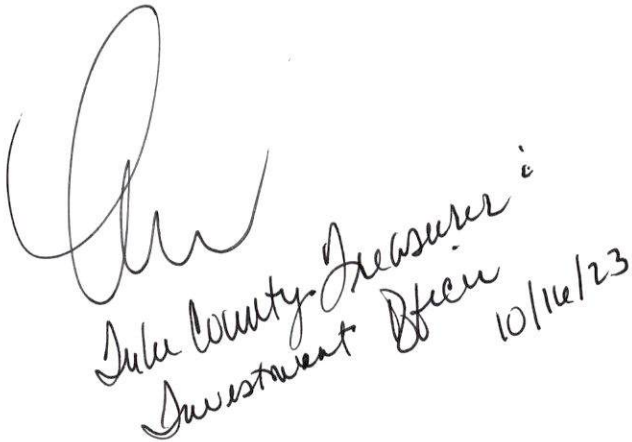 County Treasurer
Investment Officer 10/16/23